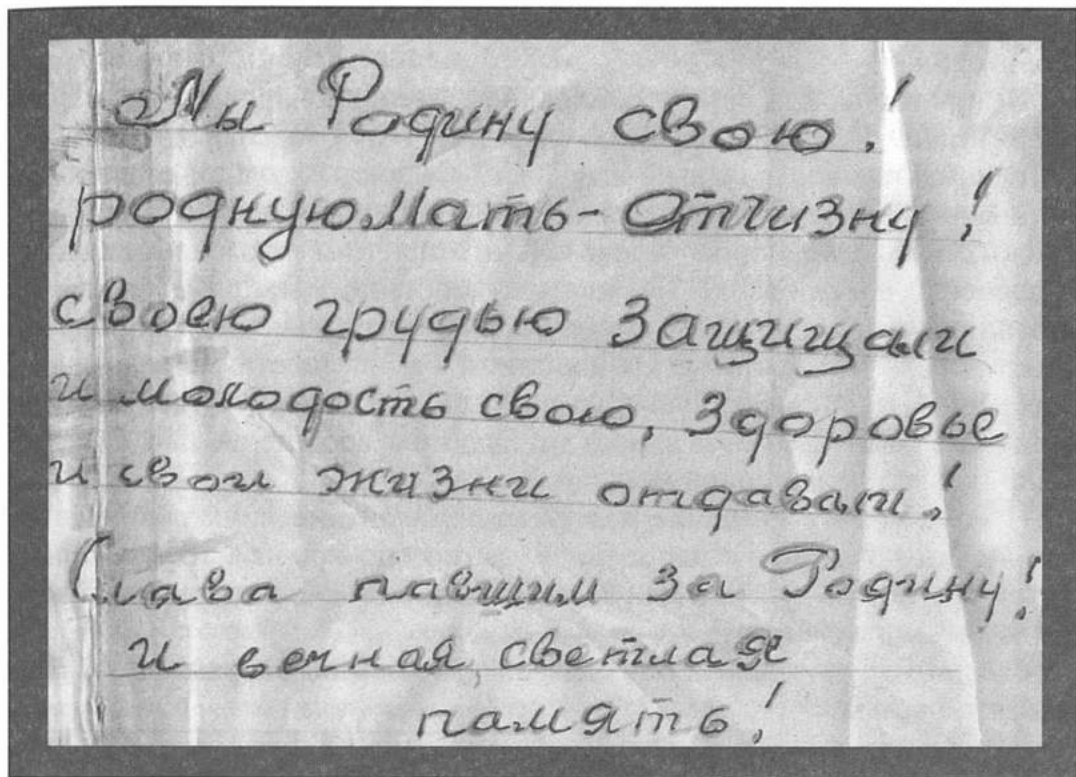 Мы Родину свою!
родную Мать-Отчизну!
своею грудью защищали
и молодость свою, здоровье
и свои жизни отдавали!
Слава павшим за Родину!
и вечная, светлая
память!